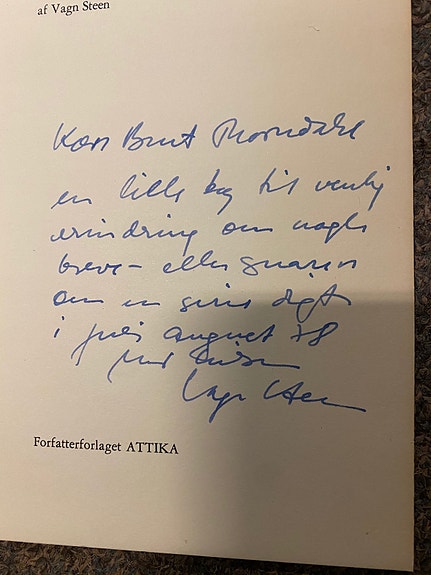 af Vagn Steen
Kære Bent Thorndahl
en lille bog til venlig
erindring om nogle
breve - eller snarere
om en serie digte
i juli august 78
Vagn Steen
Forfatterforlaget ATTIKA